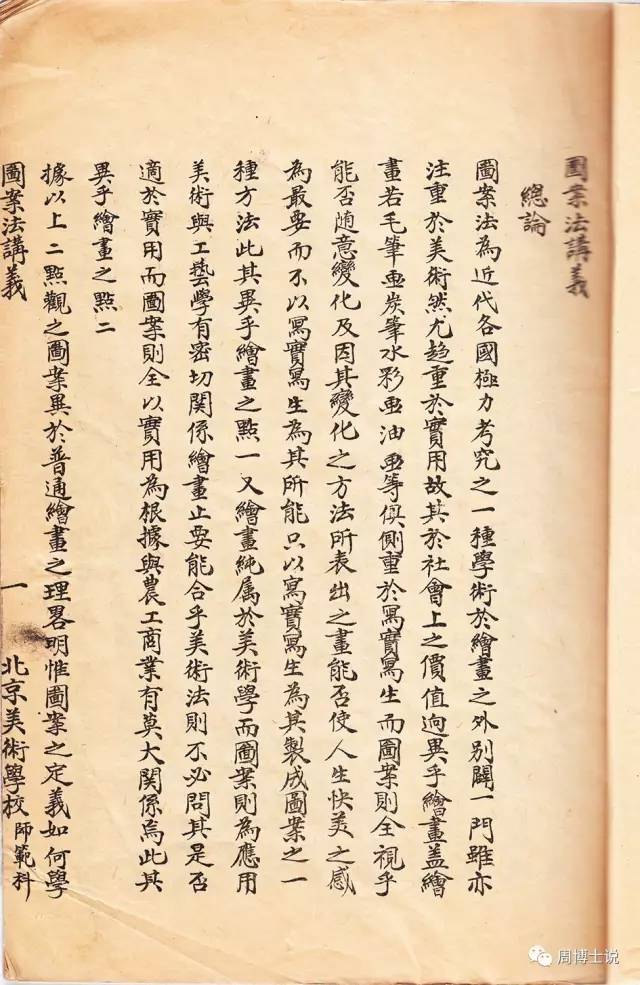 圖案法講義
總論
圖案法為近代各國極力考究之一種學術於繪畫之外別闢一門雖亦
注重於美術然尤趋重於實用故其於社會上之價值逈異乎繪畫盖繪
畫若毛筆画炭筆水彩画油画等俱側重於寫實寫生而圖案則全視乎
能否随意變化及因其變化之方法所表出之畫能否使人生快美之感
為最要而不以寫實寫生為其所能只以寫實寫生為其製成圖案之一
種方法此其異乎繪畫之點一又繪畫純属於美術學而圖案則為應用
美術與工藝學有密切関係繪畫止要能合乎美術法則不必問其是否
適於實用而圖案則全以實用為根據與農工商業有莫大関係焉此其
異乎繪畫之點二
據以上二點觀之圖案異於普通繪畫之理畧明惟圖案之定義如何學
圖案法講義 一 北京美術學校師範科
周博士说